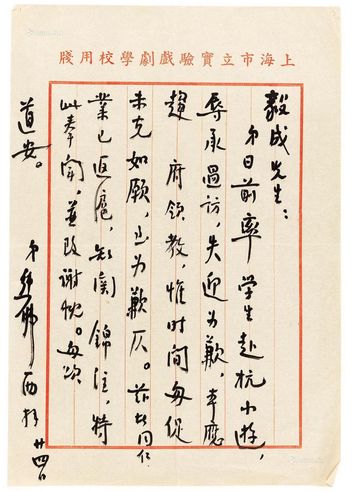 上海市立實驗戲劇學校用牋
毅成先生：
弟日前率学生赴杭小遊，
辱承過访，失迎为歉，本應
趨 府领教，惟时间匆促
未克如願，至为歉仄。兹同仁
業已返滬，知関錦注，特
此奉闻，並致谢忱。匆颂
道安。
弟熊佛西拜 廿四日